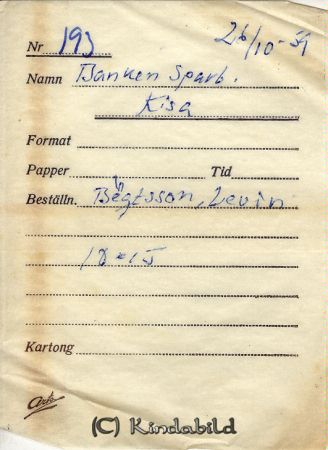 26/10-59
Nr 193
Namn Banken Sparb.
Kisa
Format
Papper Tid
Beställn. Begtsson, Levin
18x15
Kartong
Arte
(C) Kindabild